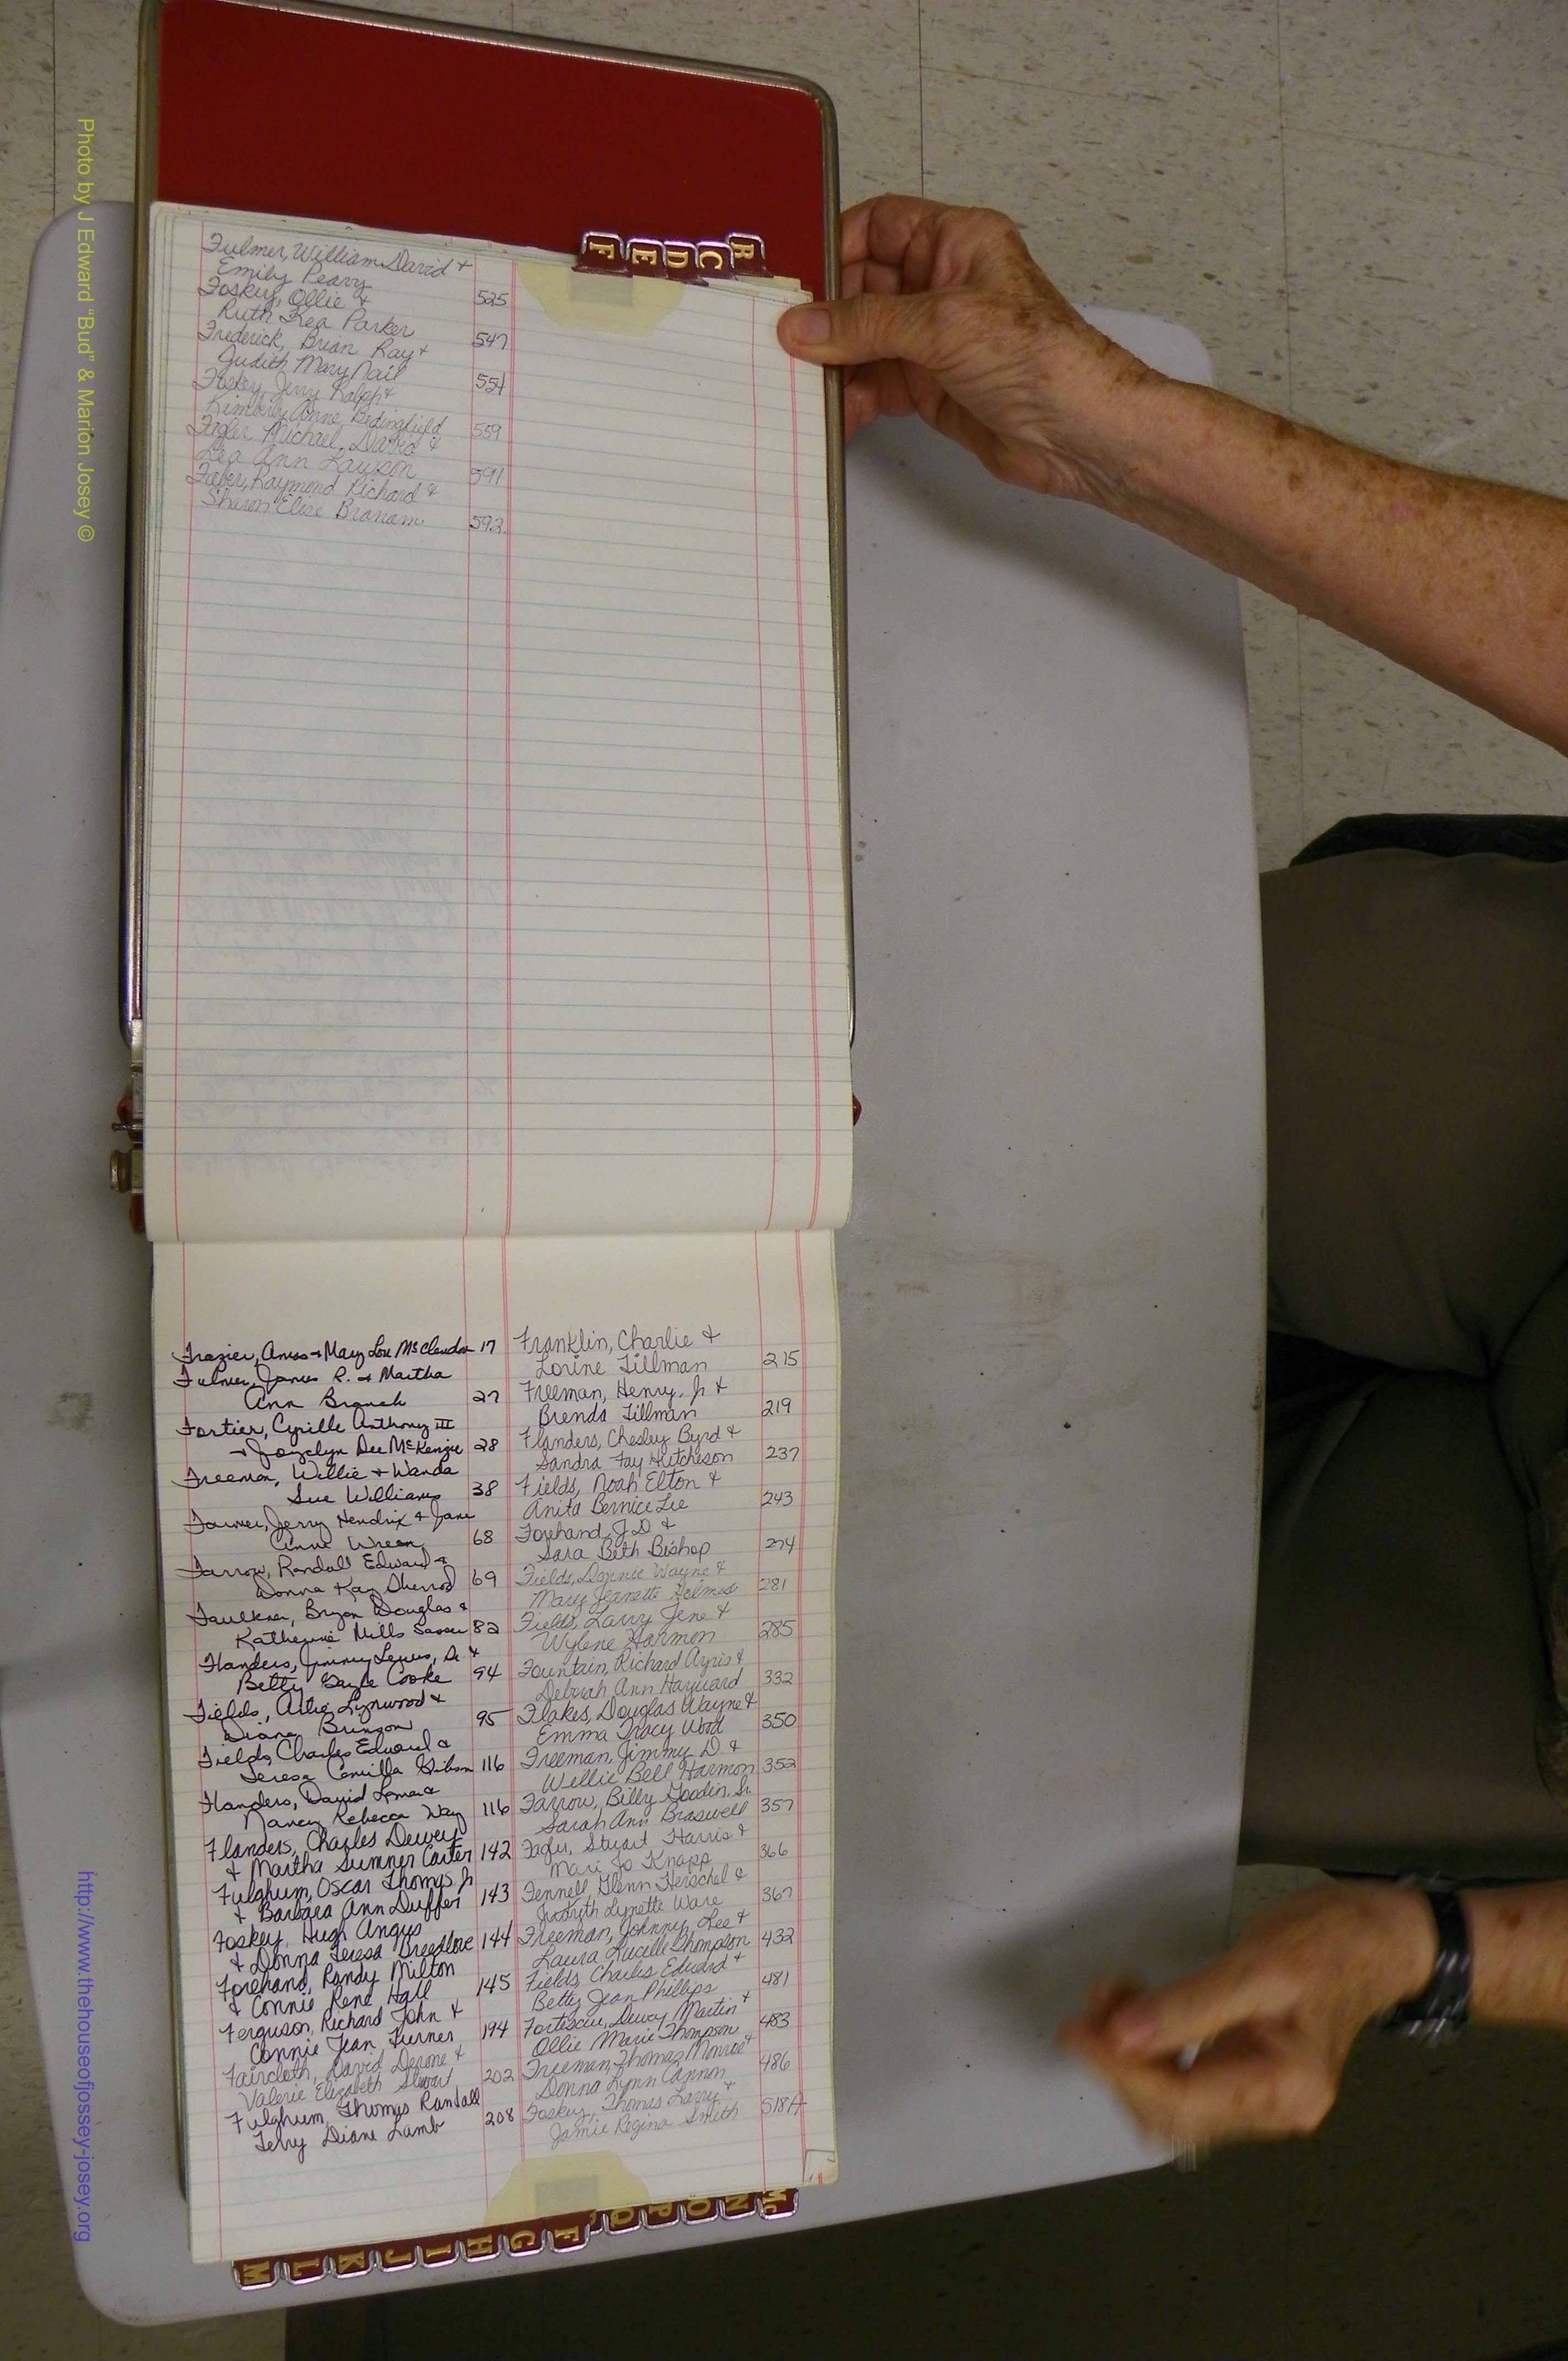 Fulmer, William David +
Emily Peavy 525
Foskey, Ollie +
Ruth Rea Parker 547
Frederick, Brian Ray +
Judith Mary Nail 554
Foskey, Jerry Ralph +
Kimberly Anne Bedingfield 559
Fagler, Michael David &
Lea Ann Lawson 591
Faber, Raymond Richard &
Sharon Elise Branam 592
B
C
D
E
F
Frazier, Amos + Mary Lou McClendon 17
Fulmer, James R. + Martha
Ann Branch 27
Fortier, Cyrille Anthony III
+ Jozelyn Dee McKenzie 28
Freeman, Willie + Wanda
Sue Williams 38
Jerry Hendrix + Jane
Anne 68
Farrow, Randall Edward &
Donna Kay Sherrod 69
Faulkner, Bryan Douglas &
Katherine Mills Sasser 82
Flanders, Jimmy Lewis, Sr. +
Betty Gayle Cooke 94
Fields, Lynwood &
Diane Brinson 95
Fields, Charles Edward &
Teresa Camilla Gibson 116
Flanders, David &
Nancy Rebecca Way 116
Flanders, Charles Dewey
& Martha Sumner Carter 142
Fulghum, Oscar Thomas Jr
& Barbara Ann Duffer 143
Foskey, Hugh Angus
& Donna Teresa Breedlove 144
Forehand, Randy Milton
& Connie Rene Hall 145
Ferguson, Richard John &
Connie Jean Turner 194
Faircloth, David Derone &
Valerie Elizabeth Stewart 202
Fulghum, Thomas Randall
Terry Diane Lamb 208
Franklin, Charlie &
Lorine Tillman 215
Freeman, Henry, Jr &
Brenda Tillman 219
Flanders, Chesley Byrd &
Sandra Fay Hutcheson 237
Fields, Noah Elton &
Anita Bernice Lee 243
Forehand, J.D. &
Sara Beth Bishop 274
Fields, Donnie Wayne &
Mary Jeanette Holmes 281
Fields, Larry Jene &
Wylene Harmon 285
Fountain, Richard Ayris &
Deborah Ann Hayward 332
Flakes, Douglas Wayne &
Emma Tracy Wood 350
Freeman, Jimmy D. &
Willie Bell Harmon 352
Farrow, Billy Goodin, Sr.
Sarah Ann Braswell 357
Fagler, Stuart Harris &
Mari Jo Knapp 366
Fennell, Glenn Herschel &
Lynette Ware 367
Freeman, Johnny Lee &
Laura Lucille Thompson 432
Fields, Charles Edward &
Betty Jean Phillips 481
Fortescue, Dewey Martin &
Ollie Marie Thompson 483
Freeman, Thomas Monroe &
Donna Lynn Cannon 486
Foskey, Thomas Larry &
Jamie Regina Smith 518A
M
L
K
J
I
H
G
F
Q
P
O
N
Mc
Photo by J Edward "Bud" & Marion Josey ©
http://www.thehouseofjossey-josey.org